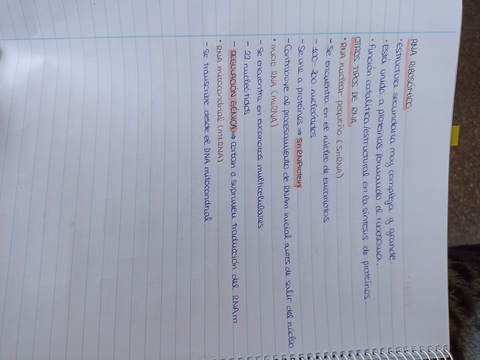 RNA RIBOSÓMICO
· Estructura secundaria muy compleja y grande
· Está unido a proteínas formando el ribosoma.
· Función catalítica/estructural en la síntesis de proteínas.
OTROS TIPOS DE RNA
* RNA nuclear pequeño (SnRNA)
- Se encuentra en el núcleo de eucariotas
- 100-200 nucleótidos
- Se une a proteínas ⇒ SnRNProtein
- Contribuye al procesamiento de RNAm inicial antes de salir del núcleo
* micro RNA (miRNA)
- Se encuentra en eucariotas multicelulares
- 22 nucleótidos
- REGULACIÓN GÉNICA ⇒ cortan o suprimen traducción del RNAm
* RNA mitocondrial (mtRNA)
- Se transcribe desde el DNA mitocondrial